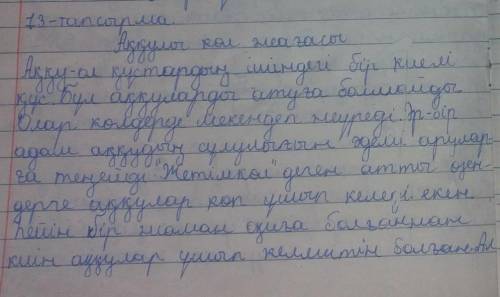 13-тапсырма.
Аққулы көл жағасы
Аққу-ол құстардың ішіндегі бір киелі
құс. Бұл аққуларды атуға болмайды.
Олар көлдерді мекендеп жүреді. Әр-бір
адам аққудың сұлулығын әдемі арулар-
ға теңейді "Жетімкөл" деген атты өзен-
дерге аққулар көп ұшып келеді екен
кейін бір жаман оқиға болғаннан
киін аққулар ұшып келмитін болған. Ал